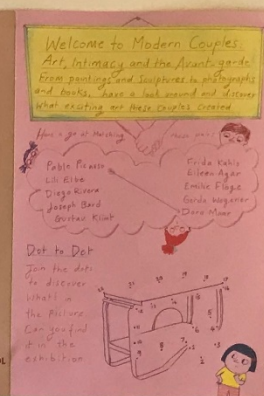 Welcome to Modern Couples:
Art, Intimacy and the Avant-garde
From paintings and sculptures to photographs
and books, have a look around and discover
what exciting art these couples created.
Have a go at Matching these pairs!
Pablo Picasso
Lili Elbe
Diego Rivera
Joseph Bard
Gustav Klimt
Frida Kahlo
Eileen Agar
Emilie Flöge
Gerda Wegener
Dora Maar
Dot to Dot
Join the dots
to discover
what's in
the picture.
Can you find
it in the
exhibition